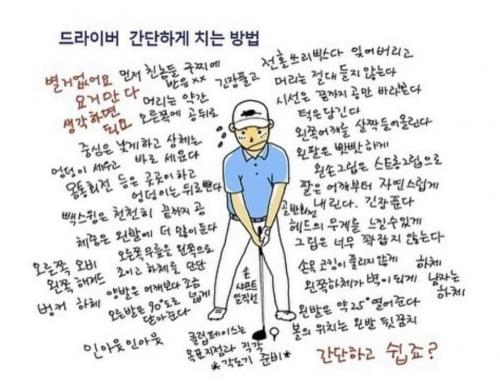 드라이버 간단하게 치는 방법
별거없어요
요거만 다
생각하면
되요
먼저 친놈들 구찌에
반응xx 긴장풀고
머리는 약간
오른쪽에 공뒤로
중심은 낮게하고 상체는
엉덩이 세우고 바로 세운다
몸통회전 등은 곳곳이 하고
엉덩이는 뒤로뺀다
백스윙은 천천히 끝까지 공
체중은 왼발에 더 많이둔다
오른쪽 오비
왼쪽 해저드
벙커
오른쪽무릎을 왼쪽으로
조이고 하체를 단단
하체 양발은 어깨보다 조금 넓게
오늘발을 90°로
닫아준다
인아웃인아웃
전홀쓰리빠따 잊어버리고
머리는 절대 들지 않는다
시선은 끝까지 공만 바라본다
턱은당긴다
왼쪽어깨를 살짝들어올린다
왼팔은 빳빳하게
왼손그립은 스트로그립으로
팔은 어깨부터 자연스럽게
내린다. 긴장푼다
골반회전
헤드의 무게를 느낄수있게
그립은 너무 꽉잡지 않는다
손목 코킹이 풀리지 않게
왼쪽하체가 벽이되게
하체
남자는
하체
왼발은 약 25° 열어준다
볼의 위치는 왼발 뒷꿈치
손
샤프트
일직선
클럽페이스는
목표지점과 직각
*각도기 준비*
간단하고 쉽죠?